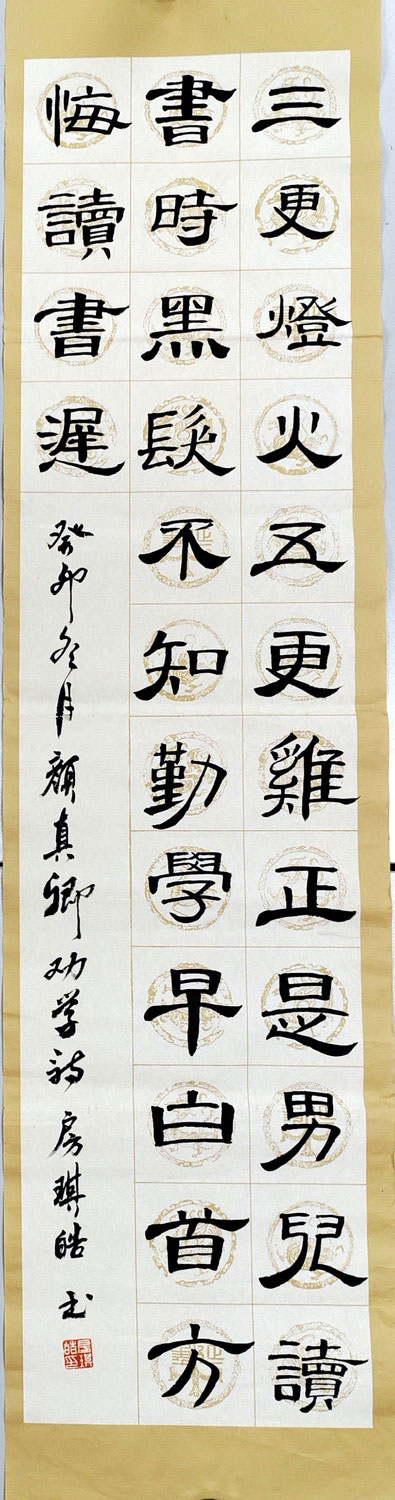 三更燈火五更雞正是男兒讀
書時黑髮不知勤學早白首方
悔讀書遲
癸卯冬月顏真卿劝学詩房琪皓书
房琪皓印